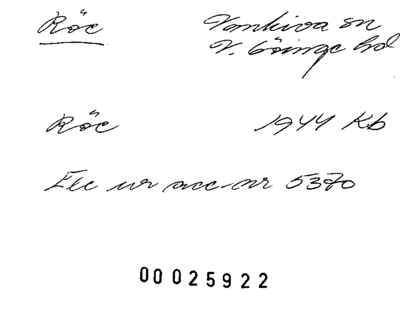 Röe Vankiva sn
V. Göinge hd
Röe 1944 Kb
Exc ur acc-nr 5370
00025922